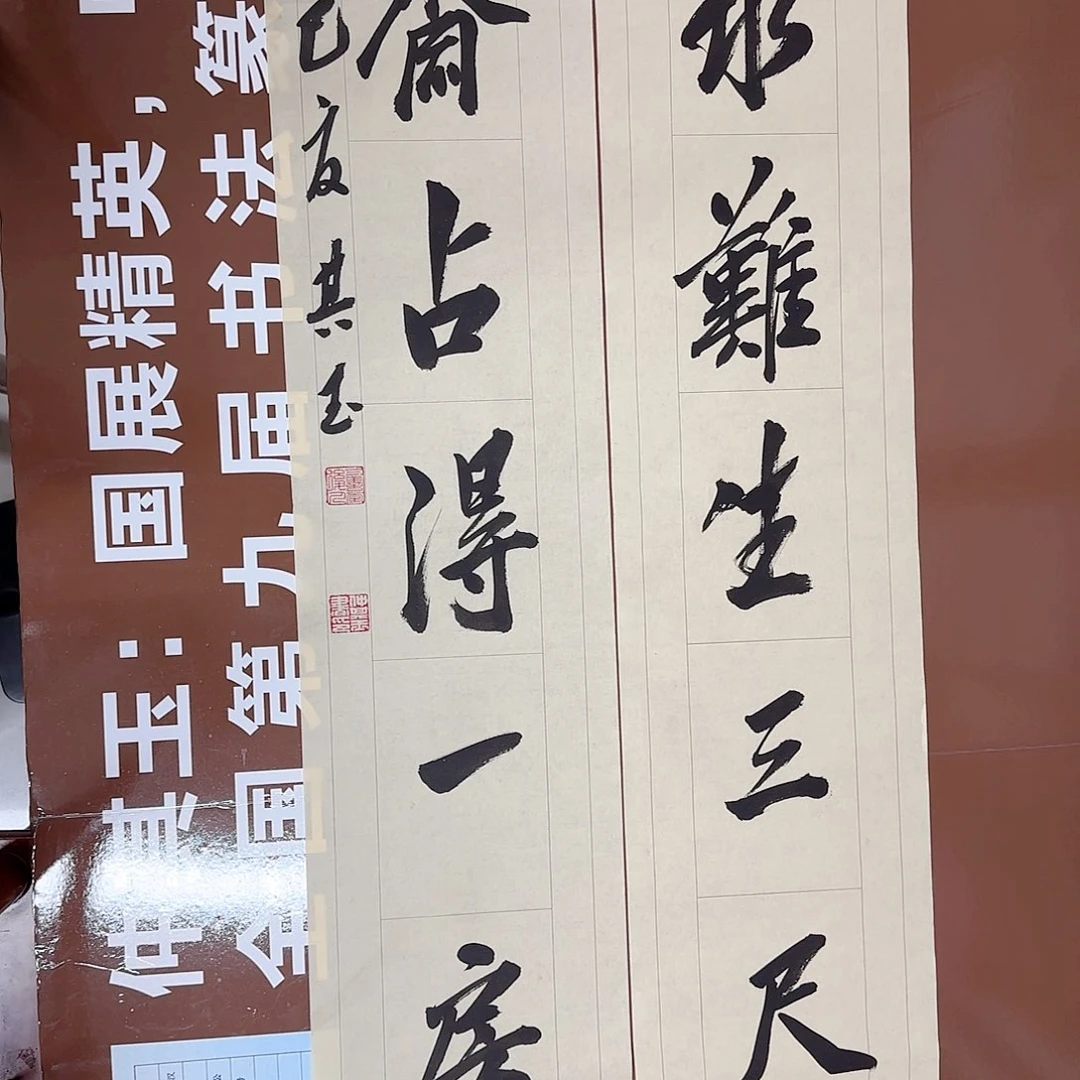 難生三尺
占得一
巳夏其玉
仲其玉：国展精英，
全国第九届书法篆